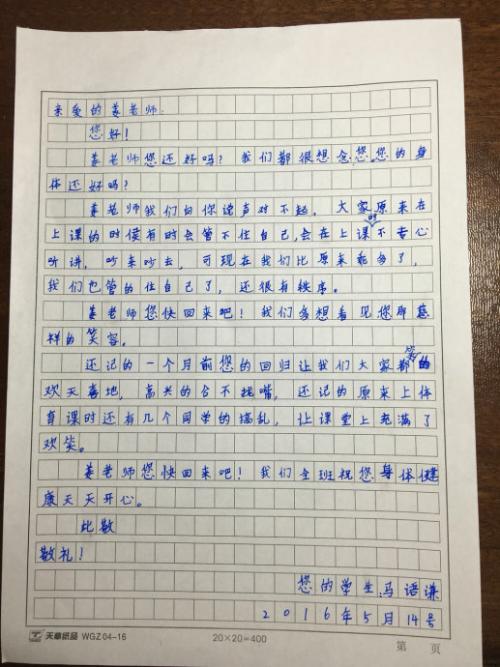 亲爱的姜老师:
您好!
姜老师您还好吗?我们都很想念您,您的身
体还好吗?
姜老师我们向你说声对不起,大家原来在
上课的时侯有时会管不住自己,会在上课时不专心
听讲,吵来吵去,可现在我们比原来乖多了,
我们也管的住自己了,还很有秩序。
姜老师您快回来吧!我们多想看见您那慈
祥的笑容。
还记的一个月前您的回归让我们大家都笑的
欢天喜地,高兴的合不拢嘴,还记的原来上体
育课时还有几个同学的搞乱,让课堂上充满了
欢笑。
姜老师您快回来吧!我们全班祝您身体健
康天天开心。
此致
敬礼!
您的学生:马语谦
2016年5月14号
天章纸品 WGZ 04-16
20×20=400
第 页